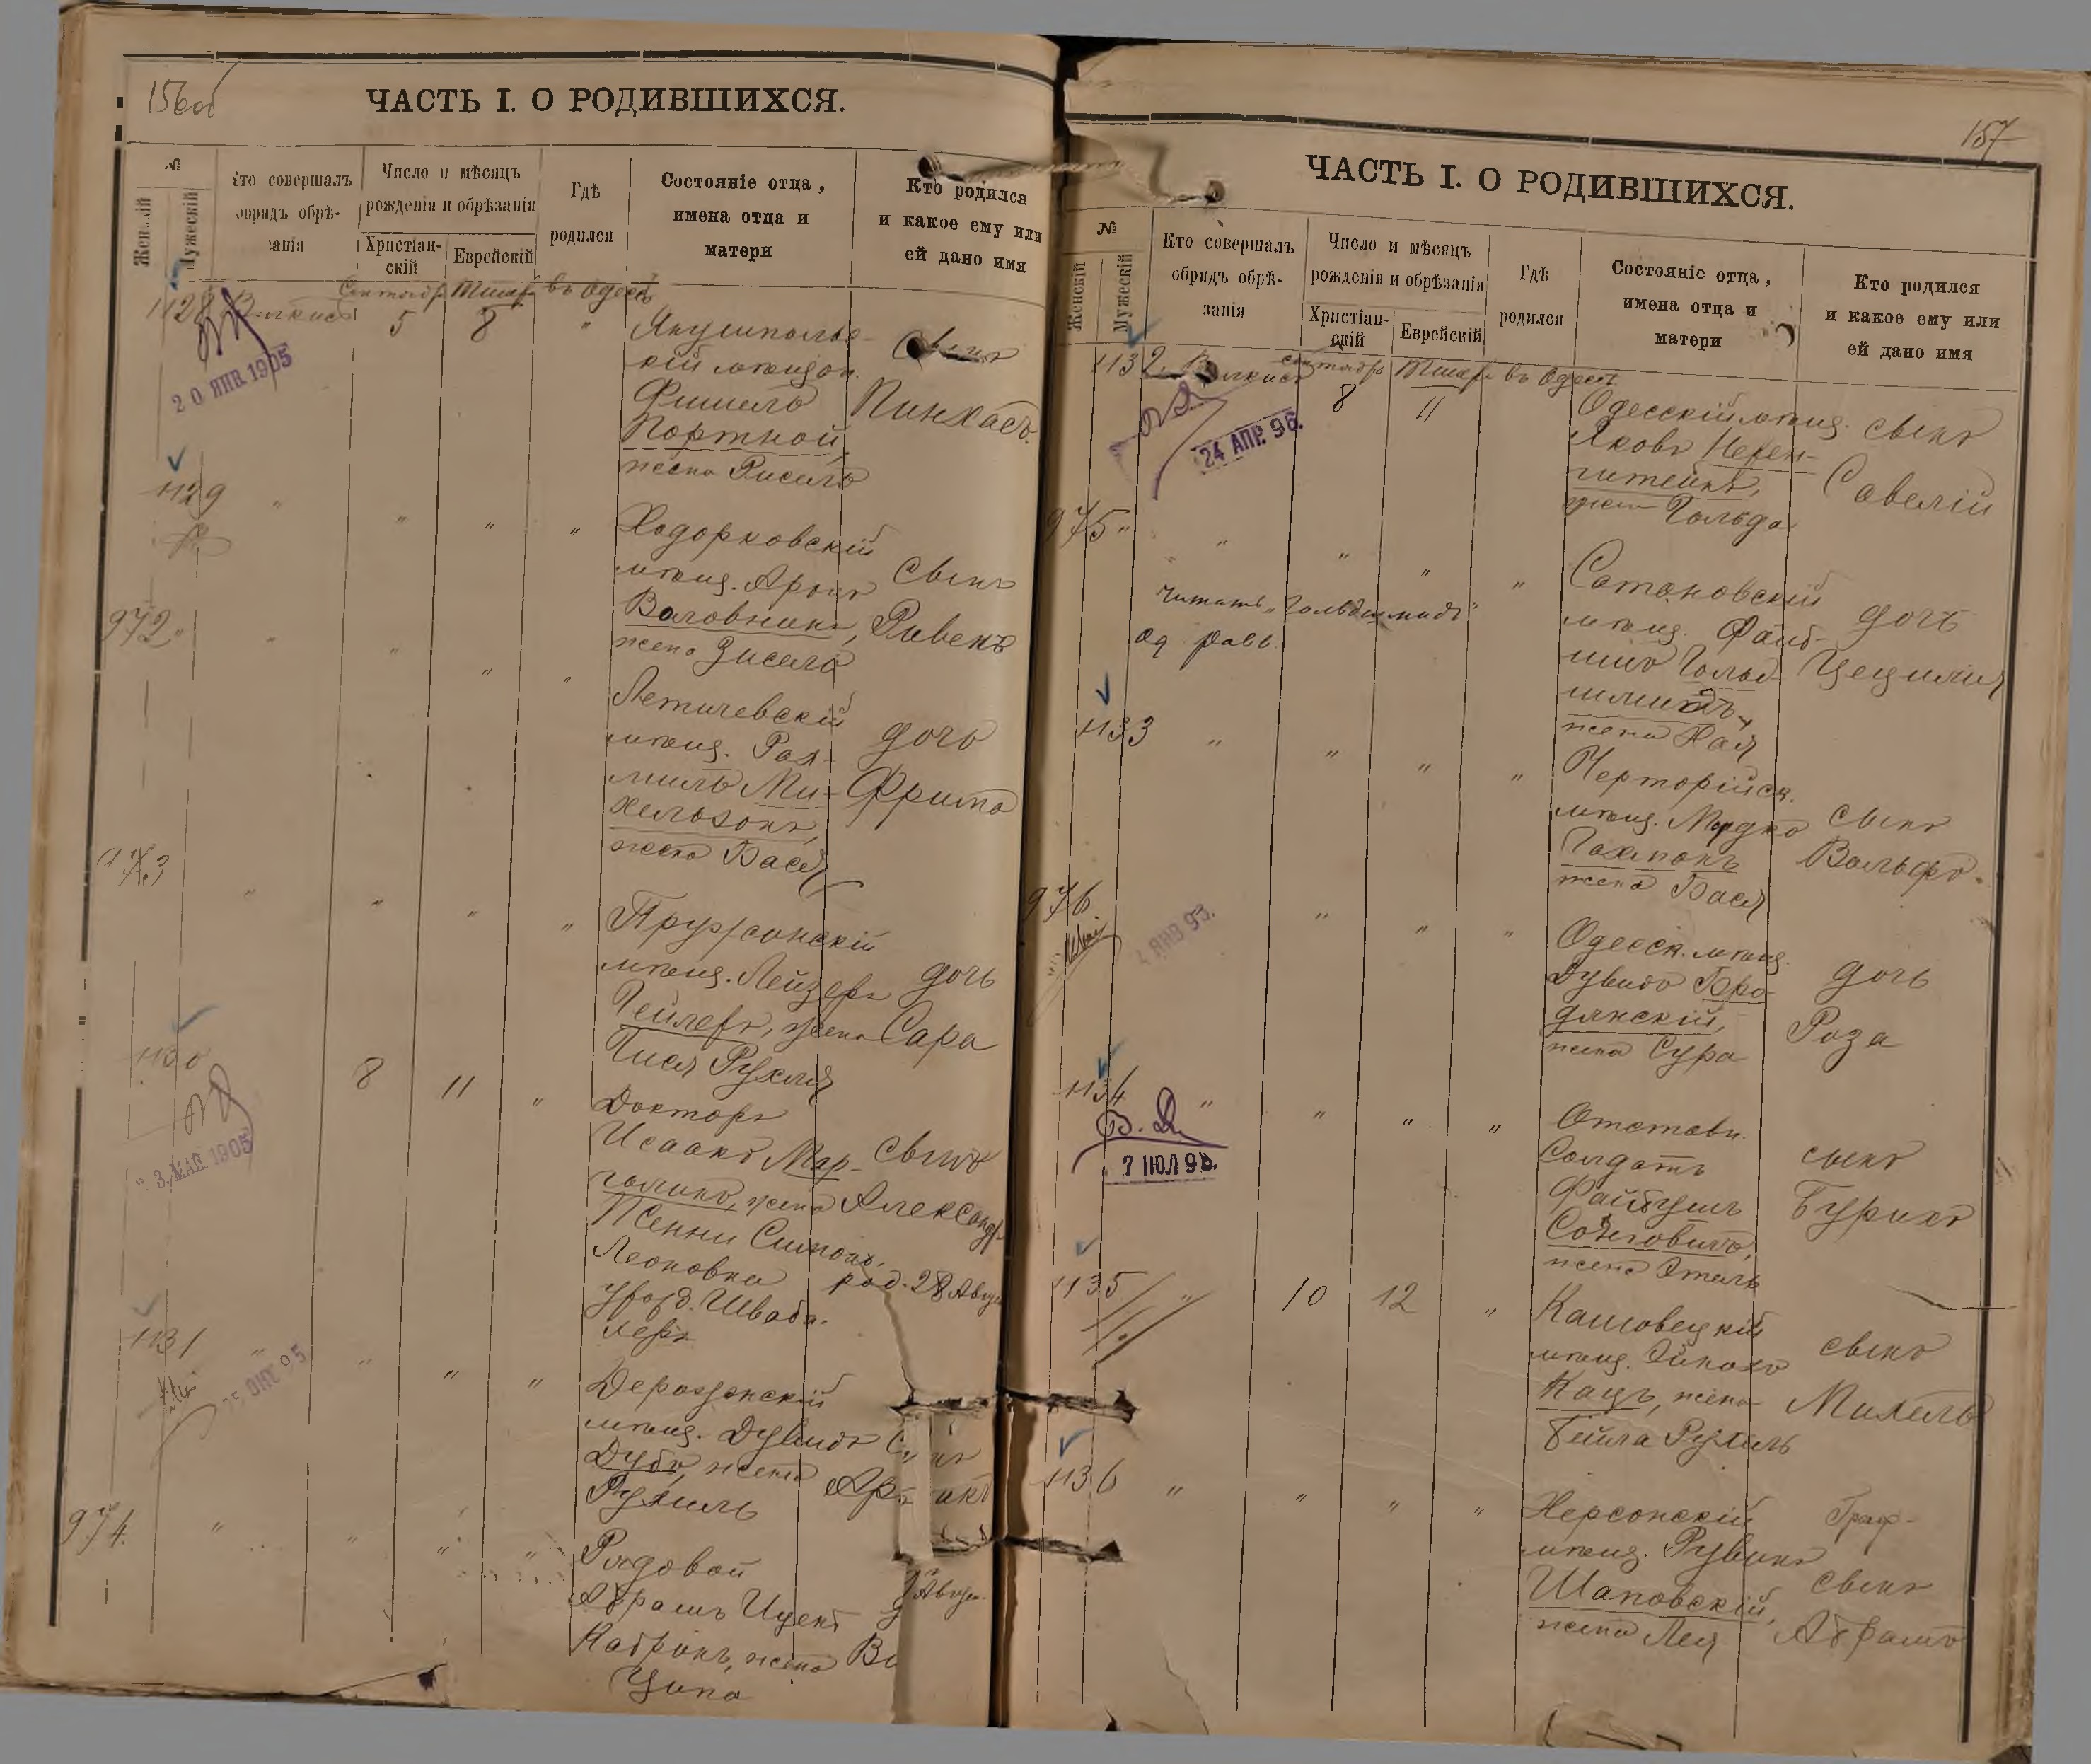 156об
ЧАСТЬ I. О РОДИВШИХСЯ.
№
Женскій
Мужескій
Кто совершалъ
обрядъ обрѣ-
занія
Число и мѣсяцъ
рожденія и обрѣзанія
Христіан-
скій
Еврейскій
Гдѣ
родился
Состояніе отца,
имена отца и
матери
Кто родился
и какое ему или
ей дано имя
1128
Сентябр Тишр въ Одессѣ
5 8 "
20 ЯНВ 1905
кій мѣщан.
Фишель
Портной,
жена Рисель
сынъ
Пинхасъ.
1129 " " " "
Ходорковскій
мѣщ. Аронъ
Воловникъ,
жена Зисель
сынъ
Рувенъ
972 " " " " "
Летичевскій
мѣщ. Рах-
миль Ми-
хельзонъ,
жена Бася
дочь
Фрима
973 " " " "
Пружанскій
мѣщ. Лейзеръ
Гейлеръ, жена
Гися Рухля
дочь
Сара
1130 8 11 "
3 МАР 1905
Докторъ
Исаакъ Мар-
голинъ, жена
Женни Симоно.
Леоновна
урожд. Шваб.
леръ
сынъ
Александръ
род. 28 Авгу
1131 " " " "
ОКТ 95
Деражнскій
мѣщ. Дувидъ
Дубъ, жена
Рухиль
974. " " " "
Рядовой
Абрамъ Ицекъ
Кабронъ, жена
Ципа
Август.
157
ЧАСТЬ I. О РОДИВШИХСЯ.
№
Женскій
Мужескій
Кто совершалъ
обрядъ обрѣ-
занія
Число и мѣсяцъ
рожденія и обрѣзанія
Христіан-
скій
Еврейскій
Гдѣ
родился
Состояніе отца,
имена отца и
матери
Кто родился
и какое ему или
ей дано имя
1132
Сентябрь Тишр въ Одессѣ
8 11
24 АПР. 96.
Одесскій мѣщ.
Яковъ Перен-
штейнъ,
жена Гольда
сынъ
Савелій
975 " " " " "
читать "Гольдшмидъ"
Од. равв.
Сатановскій
мѣщ. Фаиб-
ишъ Гольд-
шмидъ,
жена Хая
дочь
Цецилія
1133 " " " "
Черторійск.
мѣщ. Мордко
Гохманъ
жена Бася
сынъ
Вольфъ.
976. " " "
ЯНВ 93.
Одесск. мѣщ.
Дувидъ Бро-
дянскій,
жена Сура
дочь
Роза
1134 " " " "
7 ІЮЛ 98.
Отставн.
Солдатъ
Файбушъ
жена Этель
сынъ
Бурихъ
1135 " 10 12 "
мѣщ. Эйнохъ
Кацъ, жена
Бейла Рухиль
сынъ
Михель
1136 " " " "
Херсонскій
мѣщ. Рувинъ
Шаповскій,
жена Лея
сынъ
Абрамъ